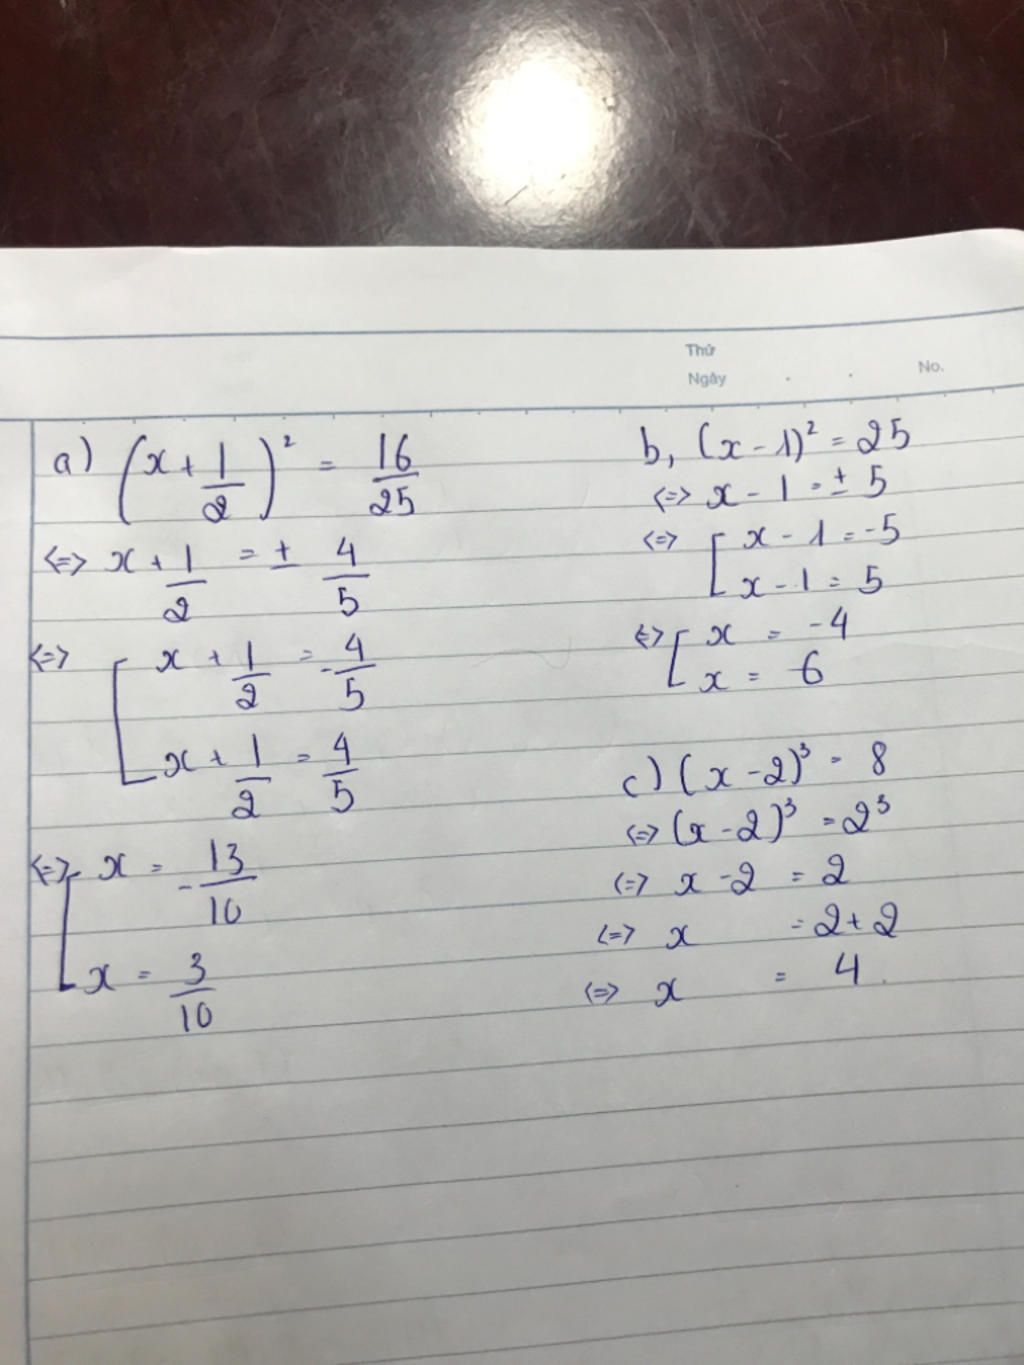 Thứ
Ngày . . No.
a) (x + 1/2)² = 16/25
<=> x + 1/2 = ± 4/5
<=> [ x + 1/2 = -4/5
x + 1/2 = 4/5
<=> [ x = -13/10
x = 3/10
b, (x - 1)² = 25
<=> x - 1 = ± 5
<=> [ x - 1 = -5
x - 1 = 5
<=> [ x = -4
x = 6
c) (x - 2)³ = 8
<=> (x - 2)³ = 2³
<=> x - 2 = 2
<=> x = 2 + 2
<=> x = 4.